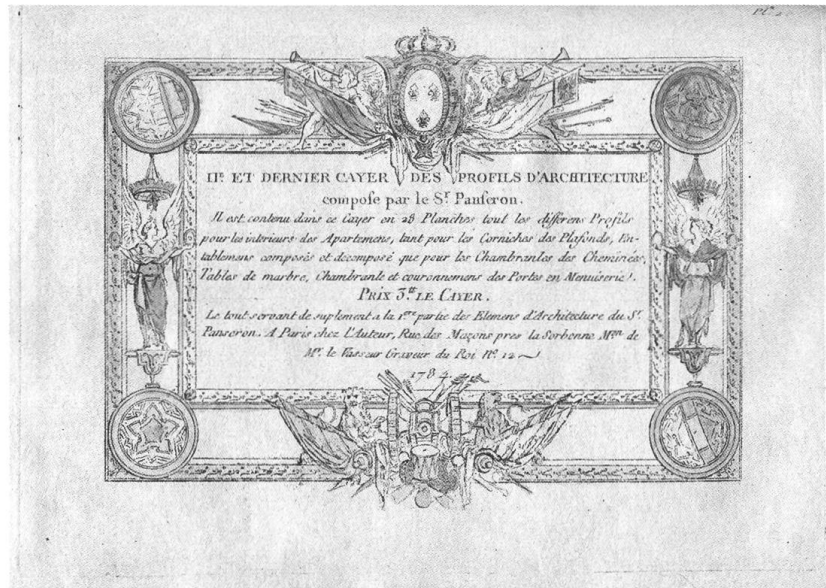 Pl.
II.e ET DERNIER CAYER DES PROFILS D'ARCHITECTURE
compose par le S.r Panseron.
Il est contenu dans ce Cayer en 28 Planches tout les differens Profils
pour les interieurs des Apartemens, tant pour les Corniches des Plafonds, En-
tablemens composés et decomposé que pour les Chambranles des Cheminées,
Tables de marbre, Chambranle et couronnemens des Portes en Menuiserie.
PRIX 3.tt LE CAYER.
Le tout servant de suplement a la 1.ere partie des Elemens d'Architecture du S.r
Panseron. A Paris chez l'Auteur, Rue des Maçons pres la Sorbonne M.on de
M.r le Vasseur Graveur du Roi N.o 12
1784